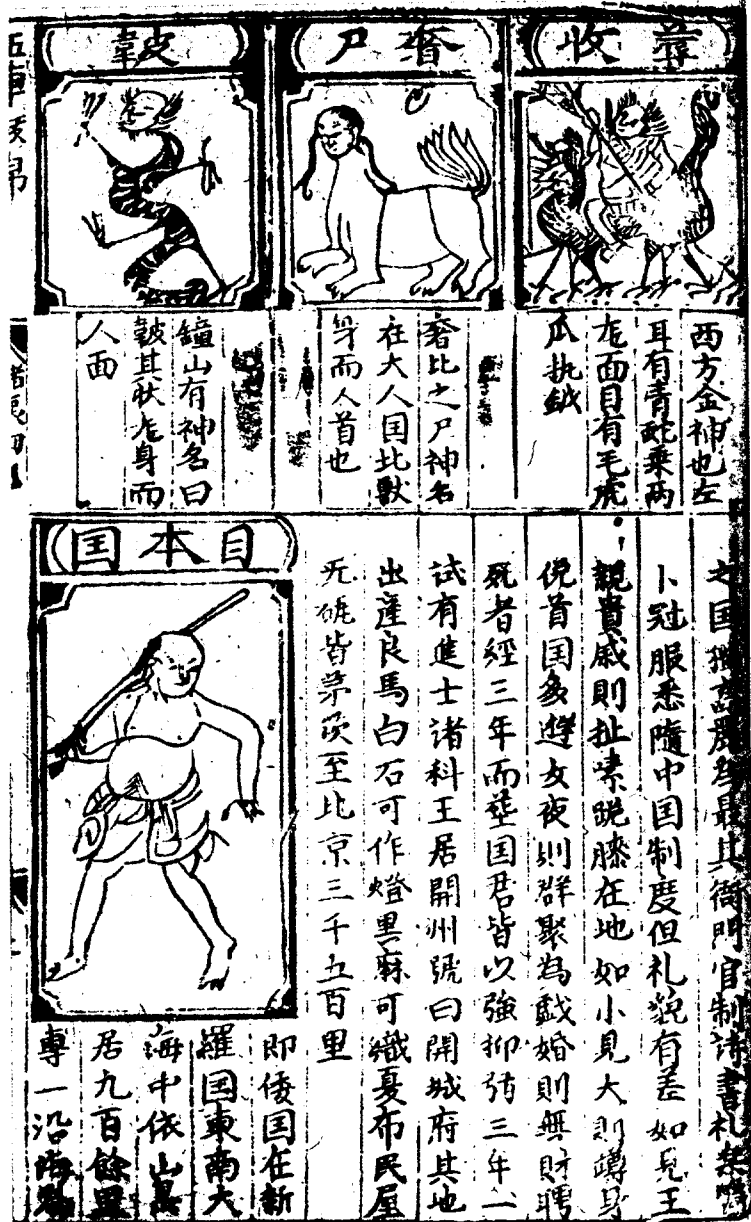 蓐收
西方金神也左
耳有青蛇乘两
龙面目有毛虎
爪执鉞
奢尸
奢比之尸神名
在大人国北獸
身而人首也
鼓
鐘山有神名曰
鼓其狀龙身而
人面
之国
最其衙門官制詩書礼樂
卜冠服悉隨中国制度但礼貌有差如見王
親貴戚則扯嗉跪膝在地如小見大則蹲身
俛首国多遊女夜則群聚為戯婚則無財聘
死者經三年而塟国君皆以強抑弱三年一
試有進士諸科王居開州號曰開城府其地
出產良馬白石可作燈黑麻可織夏布民屋
无砒皆茅茨至北京三千五百里
日本国
即倭国在新
羅国東南大
海中依山島
居九百餘里
專一沿海